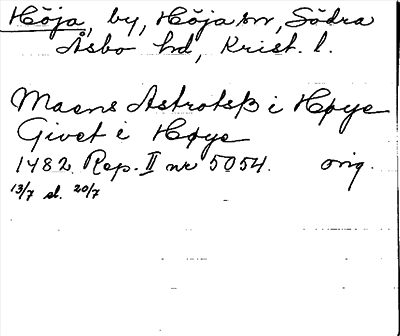 Höja, by, Höja sn, Södra
Åsbo hd, Krist. l.
Maens Astrotsß i Høye
Givet i Høye
1482 Rep. II nr 5054. orig.
13/7 el. 20/7